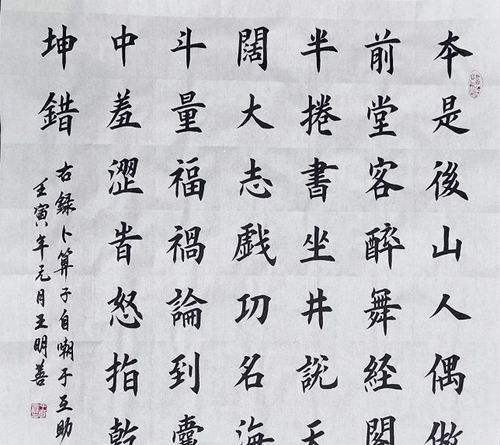 本是後山人偶做
前堂客醉舞經閣
半捲書坐井説天
闊大志戯功名海
斗量福禍論到囊
中羞澀旹怒指乾
坤錯
右錄卜算子自嘲子互助
壬寅年元月王明善